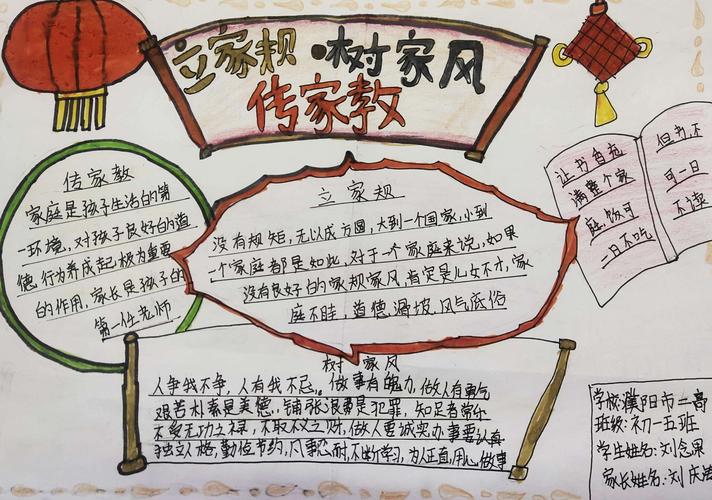 立家规·树家风
传家教
传家教
家庭是孩子生活的第
一环境,对孩子良好的道
德行为养成起极为重要
的作用,家长是孩子的
第一任老师
立家规
没有规矩,无以成方圆,大到一个国家,小到
一个家庭都是如此,对于一个家庭来说,如果
没有良好的家规家风,肯定是儿女不才,家
庭不睦,道德滑坡,风气底俗
让书香充
满整个家
庭,饭可
一日不吃
但书不
可一日
不读
树家风
人争我不争,人有我不忌。做事有魄力,做人有勇气
艰苦朴素是美德,铺张浪费是犯罪,知足者常乐
不受无功之禄,不取不义之财,做人要诚实办事要认真
独立人格,勤俭节约,凡事忍耐,不断学习,为人正直,用心做事
学校:濮阳市一高
班级:初一五班
学生姓名:刘念果
家长姓名:刘庆